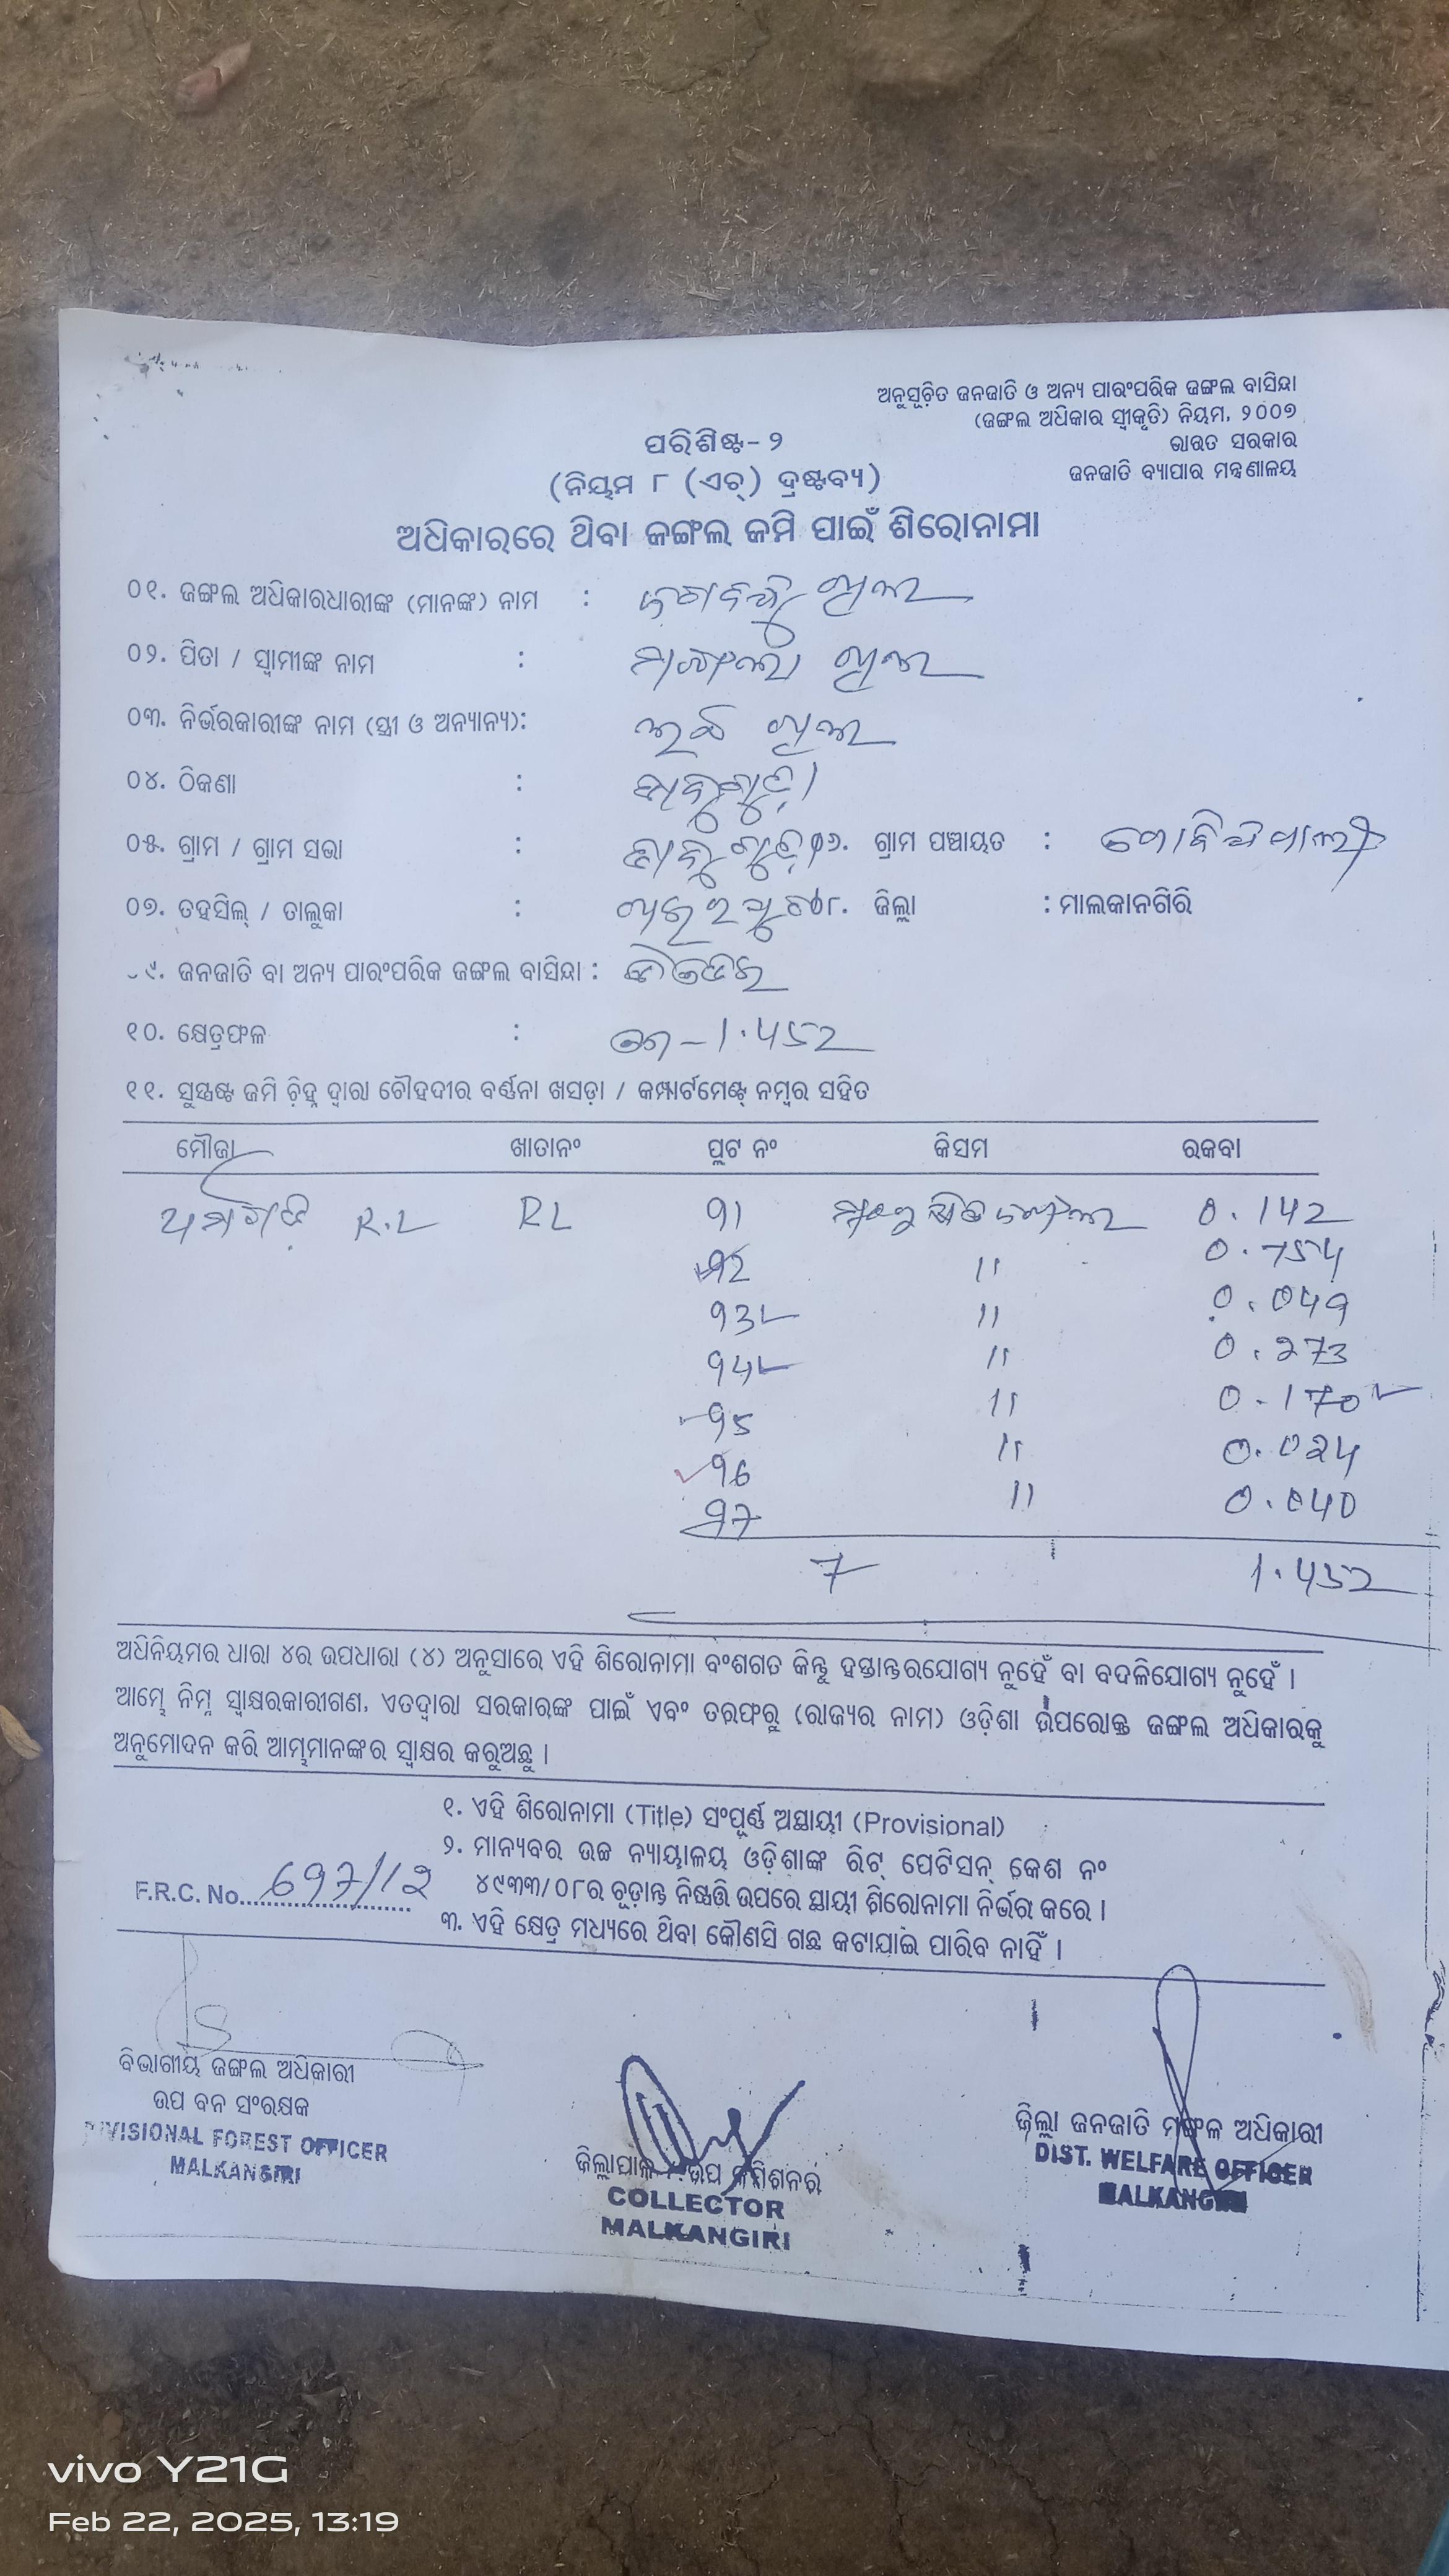 ଅନୁସୂଚିତ ଜନଜାତି ଓ ଅନ୍ୟ ପାରଂପରିକ ଜଙ୍ଗଲ ବାସିନ୍ଦା
(ଜଙ୍ଗଲ ଅଧିକାର ସ୍ୱୀକୃତି) ନିୟମ, ୨୦୦୭
ଭାରତ ସରକାର
ଜନଜାତି ବ୍ୟାପାର ମନ୍ତ୍ରଣାଳୟ
ପରିଶିଷ୍ଟ- ୨
(ନିୟମ ୮ (ଏଚ୍) ଦ୍ରଷ୍ଟବ୍ୟ)
ଅଧିକାରରେ ଥିବା ଜଙ୍ଗଲ ଜମି ପାଇଁ ଶିରୋନାମା
୦୧. ଜଙ୍ଗଲ ଅଧିକାରଧାରୀଙ୍କ (ମାନଙ୍କ) ନାମ :
୦୨. ପିତା / ସ୍ୱାମୀଙ୍କ ନାମ :
୦୩. ନିର୍ଭରକାରୀଙ୍କ ନାମ (ସ୍ତ୍ରୀ ଓ ଅନ୍ୟାନ୍ୟ):
୦୪. ଠିକଣା :
୦୫. ଗ୍ରାମ / ଗ୍ରାମ ସଭା : ୦୬. ଗ୍ରାମ ପଞ୍ଚାୟତ :
୦୭. ତହସିଲ୍ / ତାଲୁକା : ୦୮. ଜିଲ୍ଲା : ମାଲକାନଗିରି
୦୯. ଜନଜାତି ବା ଅନ୍ୟ ପାରଂପରିକ ଜଙ୍ଗଲ ବାସିନ୍ଦା :
୧୦. କ୍ଷେତ୍ରଫଳ : 1.452
୧୧. ସୁସ୍ପଷ୍ଟ ଜମି ଚିହ୍ନ ଦ୍ୱାରା ଚୌହଦୀର ବର୍ଣ୍ଣନା ଖସଡ଼ା / କମ୍ପାର୍ଟମେଣ୍ଟ୍ ନମ୍ବର ସହିତ
ମୌଜା ଖାତାନଂ ପ୍ଲଟ ନଂ କିସମ ରକବା
R.L RL 91 0.142
92 11 0.754
93 11 0.049
94 11 0.273
95 11 0.170
96 11 0.024
97 11 0.040
7 1.452
ଅଧିନିୟମର ଧାରା ୪ର ଉପଧାରା (୪) ଅନୁସାରେ ଏହି ଶିରୋନାମା ବଂଶଗତ କିନ୍ତୁ ହସ୍ତାନ୍ତରଯୋଗ୍ୟ ନୁହେଁ ବା ବଦଳିଯୋଗ୍ୟ ନୁହେଁ ।
ଆମ୍ଭେ ନିମ୍ନ ସ୍ୱାକ୍ଷରକାରୀଗଣ, ଏତଦ୍ୱାରା ସରକାରଙ୍କ ପାଇଁ ଏବଂ ତରଫରୁ (ରାଜ୍ୟର ନାମ) ଓଡ଼ିଶା ଉପରୋକ୍ତ ଜଙ୍ଗଲ ଅଧିକାରକୁ
ଅନୁମୋଦନ କରି ଆମ୍ଭମାନଙ୍କର ସ୍ୱାକ୍ଷର କରୁଅଛୁ ।
୧. ଏହି ଶିରୋନାମା (Title) ସଂପୂର୍ଣ୍ଣ ଅସ୍ଥାୟୀ (Provisional)
୨. ମାନ୍ୟବର ଉଚ୍ଚ ନ୍ୟାୟାଳୟ ଓଡ଼ିଶାଙ୍କ ରିଟ୍ ପେଟିସନ୍ କେଶ ନଂ
୪୯୩୩/୦୮ର ଚୂଡ଼ାନ୍ତ ନିଷ୍ପତ୍ତି ଉପରେ ସ୍ଥାୟୀ ଶିରୋନାମା ନିର୍ଭର କରେ ।
F.R.C. No. 697/12
୩. ଏହି କ୍ଷେତ୍ର ମଧ୍ୟରେ ଥିବା କୌଣସି ଗଛ କଟାଯାଇ ପାରିବ ନାହିଁ ।
ବିଭାଗୀୟ ଜଙ୍ଗଲ ଅଧିକାରୀ
ଉପ ବନ ସଂରକ୍ଷକ
DIVISIONAL FOREST OFFICER
MALKANGIRI
ଜିଲ୍ଲାପାଳ ଉପ କମିଶନର
COLLECTOR
MALKANGIRI
ଜିଲ୍ଲା ଜନଜାତି ମଙ୍ଗଳ ଅଧିକାରୀ
DIST. WELFARE OFFICER
MALKANGIRI
vivo Y21G
Feb 22, 2025, 13:19